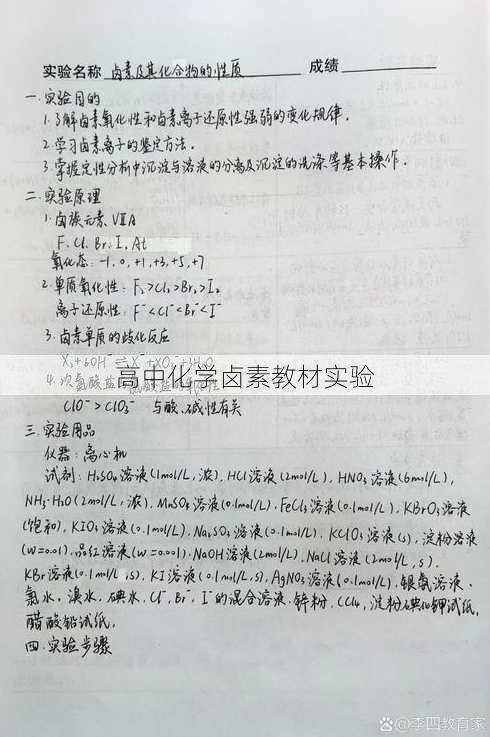 实验名称 卤素及其化合物的性质 成绩
一.实验目的
1.了解卤素氧化性和卤素离子还原性强弱的变化规律.
2.学习卤素离子的鉴定方法.
3.掌握定性分析中沉淀与溶液的分离及沉淀的洗涤等基本操作.
二.实验原理
1.卤族元素 ⅦA
F. Cl. Br. I. At
氧化态: -1, 0, +1, +3, +5, +7
2.单质氧化性: F₂>Cl₂>Br₂>I₂
离子还原性: F⁻<Cl⁻<Br⁻<I⁻
3.卤素单质的歧化反应
高中化学卤素教材实验
ClO⁻>ClO₃⁻ 与酸.碱性有关
三.实验用品
仪器: 离心机
试剂: H₂SO₄溶液(1mol/L,浓). HCl溶液(2mol/L). HNO₃溶液(6mol/L),
NH₃·H₂O(2mol/L,浓). MnSO₄溶液(0.1mol/L). FeCl₃溶液(0.1mol/L). KBrO₃溶液
(饱和). KIO₃溶液(0.1mol/L). Na₂SO₃溶液(0.1mol/L). KClO₃溶液(s), 淀粉溶液
(w=0.01).品红溶液(w=0.001).NaOH溶液(2mol/L).NaCl溶液(2mol/L,s).
KBr溶液(0.1mol/L,s). KI溶液(0.1mol/L,s). AgNO₃溶液(0.1mol/L).银氨溶液.
氯水, 溴水, 碘水, Cl⁻, Br⁻, I⁻的混合溶液.锌粉, CCl₄, 淀粉碘化钾试纸,
醋酸铅试纸.
四.实验步骤
@李四教育家